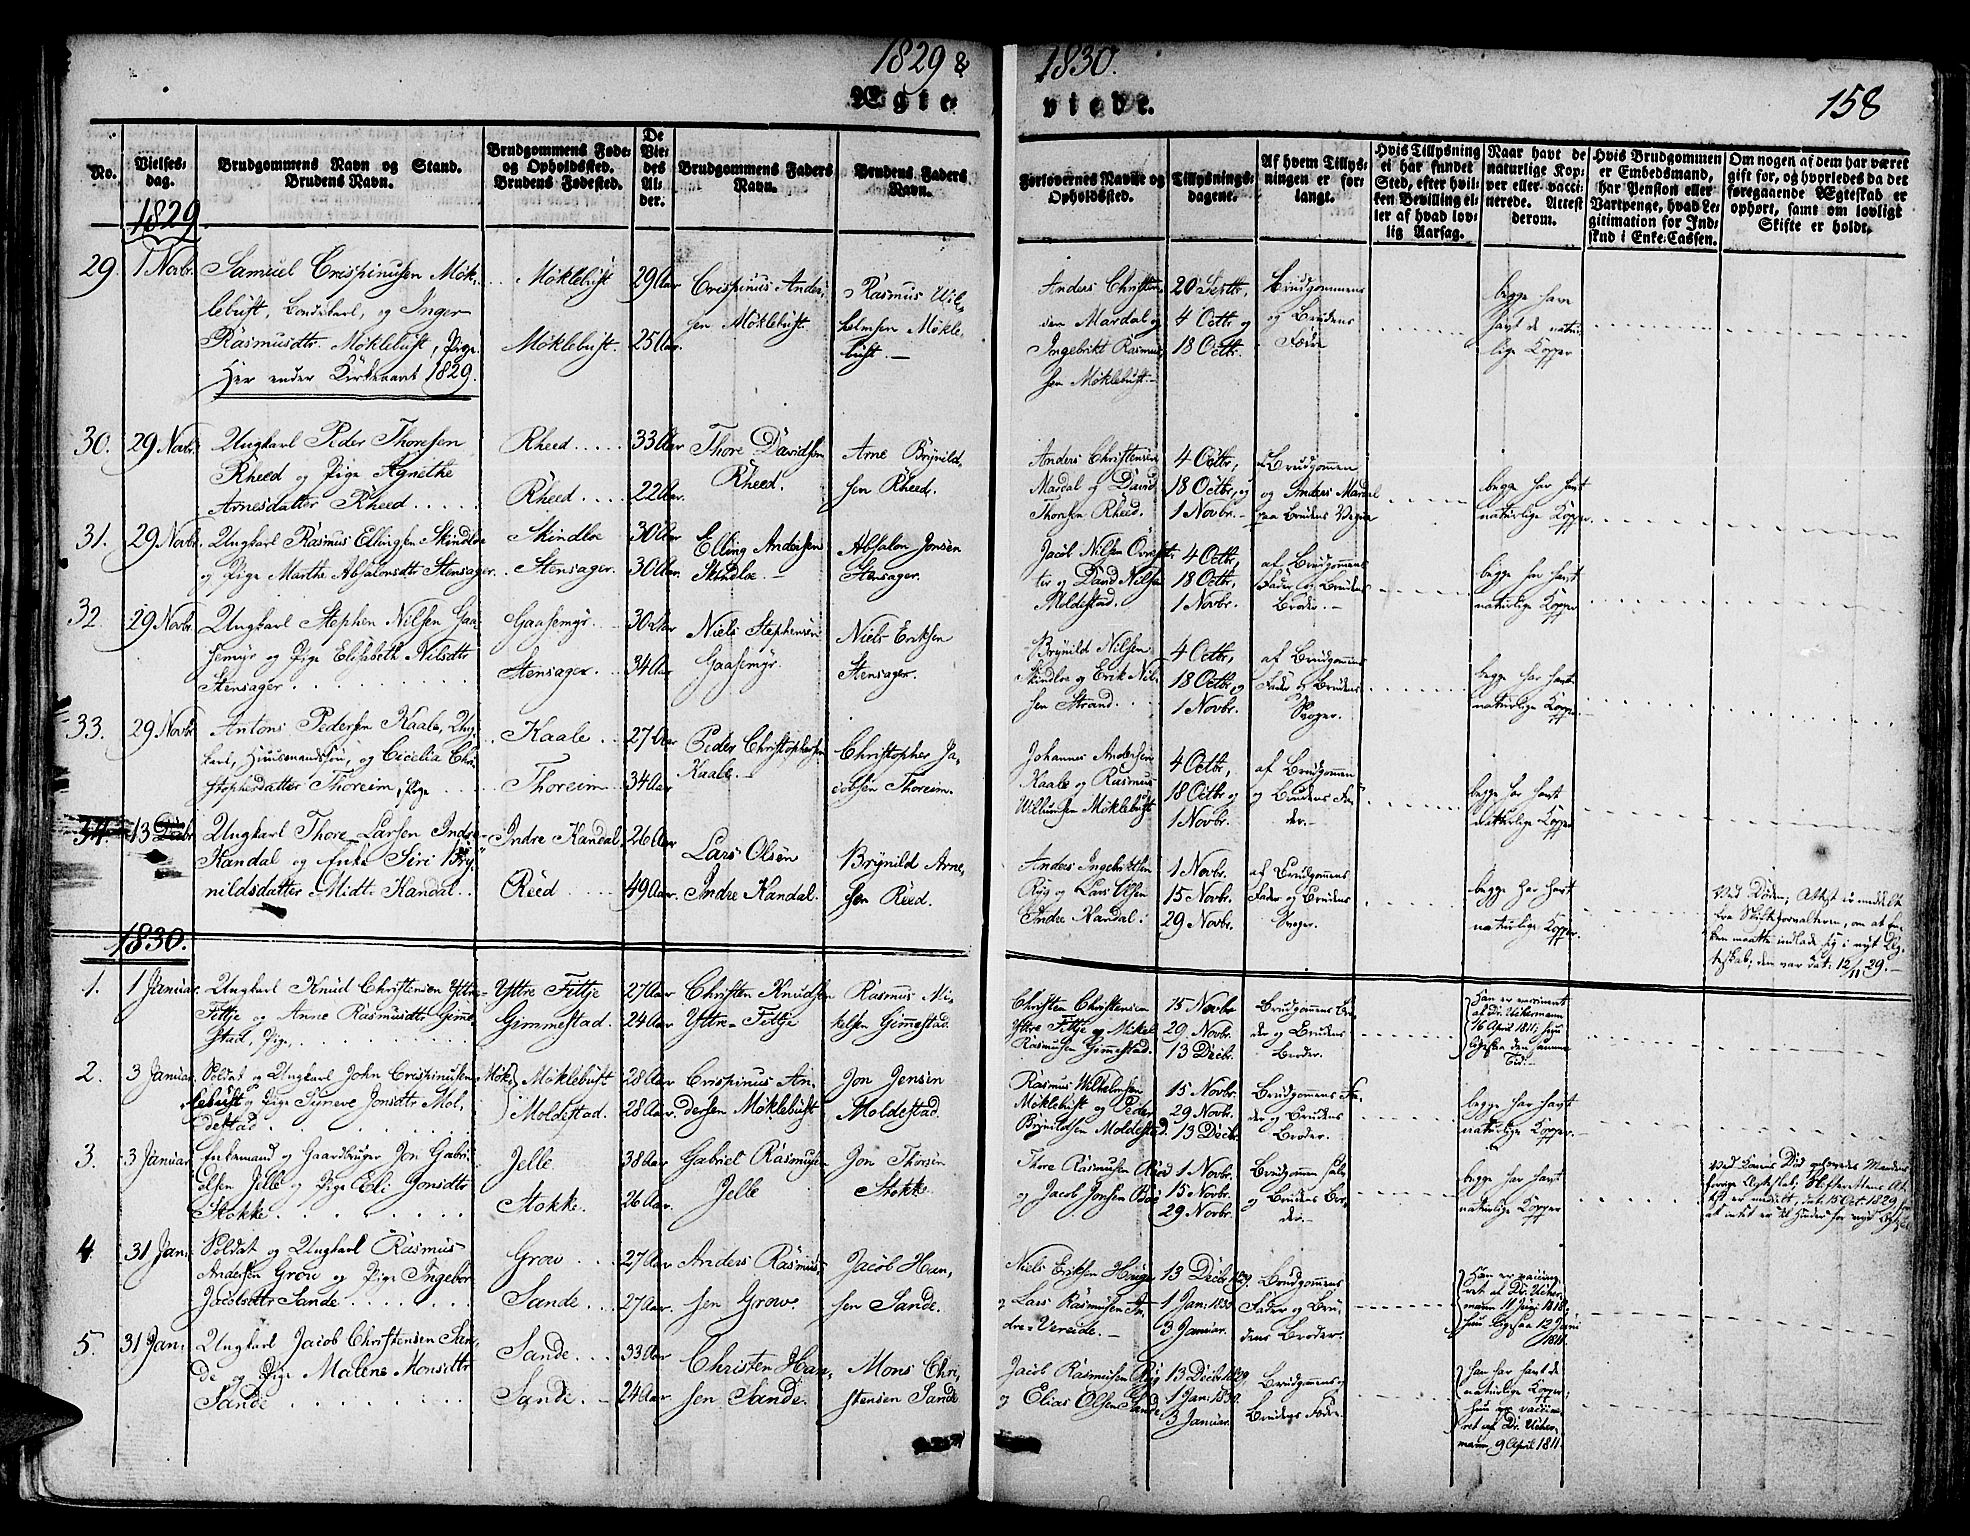 1829 & 1830.
Ægte viede.
158
No.
Vielses-
dag.
Brudgommens Navn og Stand.
Brudens Navn.
Brudgommens Føde-
og Opholdssted.
Brudens Fødested.
De
Vie-
des
Al-
der.
Brudgommens Faders
Navn.
Brudens Faders
Navn.
Forlovernes Navne og
Opholdssted.
Tillysnings-
dagene.
Af hvem Tillys-
ningen er for-
langt.
Hvis Tillysning
ei har fundet
Sted, efter hvil-
ken Bevilling el-
ler af hvad lov-
lig Aarsag.
Naar havt de
naturlige Kop-
per eller vacci-
nerede. Attest
derom.
Hvis Brudgommen
er Embedsmand,
har Pension eller
Vartpenge, hvad Le-
gitimation for Ind-
skud i Enke-Cassen.
Om nogen af dem har været
gift før, og hvorledes da det
foregaaende Ægteskab er
ophørt, samt om lovligt
Skifte er holdt.
1829.
29. 1 Novbr.
Samuel Crispinusen Møk-
lebust, og Inger
Rasmusdtr. Møklebust, Pige.
Her ender Kirkeaaret 1829.
Møklebust
Møklebust.
29 Aar
25 Aar.
Crispinus Ander-
sen Møklebust.
Rasmus Wil-
helmsen Møkle-
bust. —
Anders Christen-
sen Mardal og
Ingebrikt Rasmus-
sen Møklebust. —
20 Septbr,
4 Octbr, og
18 Octbr.
Brudgommens
og Brudens
Fædre
begge have
havt de natur-
lige Kopper
30. 29 Novbr.
Ungkarl Peder Thoresen
Rheed og Pige Agnethe
Arnesdatter Rheed . . . . .
Rheed . . . .
Rheed . . . .
33 Aar
22 Aar.
Thore Davidsen
Rheed.
Arne Brynild-
sen Rheed.
Anders Christensen
Mardal og David
Thoresen Rheed.
4 Octbr,
18 Octbr, og
1 Novbr. —
Brudgommen
og Anders Mardal
paa Brudens Vegne
begge har havt
naturlige Kopper.
31. 29 Novbr.
Ungkarl Rasmus Ellingsen Skindloe
og Pige Marthe Absalonsdtr Stensager.
Skindloe
Stensager.
30 Aar
30 Aar.
Elling Andersen
Skindloe. —
Absalon Jonsen
Stensager.
Jacob Nilsen
og David Nilsen
Moldestad.
4 Octbr,
18 Octbr,
1 Novbr.
af Brudgommens
Fader og Brudens
Broder. —
begge har havt
naturlige Kopper.
32. 29 Novbr.
Ungkarl Stephen Nilsen Gaa-
semyr og Pige Elisabeth Nilsdtr
Stensager . . . . . . .
Gaasemyr. . .
Stensager. . .
30 Aar
34 Aar
Niels Stephensen
Gaasemyr.
Niels Eriksen
Stensager.
Brynild Nilsen
Skindloe og Erik Nil-
sen Strand. . . .
4 Octbr,
18 Octbr, og
1 Novbr.
af Brudgommens
Fader og Brudens
Svoger.
begge har havt
naturlige Kopper.
33. 29 Novbr
Antons Pedersen Kaale, Ung-
karl, Huusmandssøn, og Cicelia Chri-
stophersdatter Thoreim, Pige
Kaale . . .
Thoreim . . .
27 Aar
34 Aar
Peder Christophersen
Kaale. —
Christopher Ja-
cobsen Thoreim.
Johannes Andersen
Kaale og Rasmus
Willumsen Møklebust
4 Octbr,
18 Octbr og
1 Novbr.
af Brudgommen
og Brudens Fa-
der. —
begge har havt
naturlige Kopper.
34. 13 Decbr
Ungkarl Thore Larsen Indre
Kandal og Enke Siri Bry-
nildsdatter Midt-Kandal . .
Indre Kandal.
Reed . . . .
26 Aar
49 Aar.
Lars Olsen
Indre Kandal.
Brynild Arne-
sen Reed.
Anders Ingebrittsen
Ryg og Lars Olsen
Indre Kandal.
1 Novbr.
15 Novbr.
29 Novbr.
af Brudgommens
Fader og Brudens
Svoger.
begge har havt
naturlige Kopper.
Ved Døden; Attest er meddelt
fra Skifteforvalteren, om at En-
ken maatte indlade sig i nyt Æg-
teskab; den var dat: 12/11 29. —
1830.
1. 1 Januar.
Ungkarl Knud Christensen Yttre-
Fittje og Anne Rasmusdtr Gimme-
stad, Pige, . . . . . . .
Yttre Fittje
Gimmestad.
27 Aar
24 Aar
Christen Knudsen
Yttre-Fittje
Rasmus Mi-
kelsen Gimmestad.
Christen Christensen
Yttre Fittje og Mikel
Rasmusen Gimmestad.
15 Novbr
29 Novbr.
13 Decbr.
Brudgommens Bro-
der og Brudens
Broder.
Han er vaccineret
af Dr. Uckermann
16 April 1811; hun
ligesaa den samme
Tid. —
2. 3 Januar
Soldat og Ungkarl John Crispinusen Møk-
lebust og Pige Synneve Jonsdtr Mol-
destad. . . . . . . . .
Møklebust
Moldestad.
28 Aar
28 Aar.
Crispinus An-
dersen Møklebust
Jon Jensen
Moldestad.
Rasmus Wilhelmsen
Møklebust og Peder
Brynildsen Moldestad.
15 Novbr.
29 Novbr.
13 Decbr.
Brudgommens Fa-
der og Brudens
Broder.
begge har havt
naturlige Kopper. —
3. 3 Januar
Enkemand og Gaardbruger Jon Gabri-
elsen Jelle og Pige Eli Jonsdtr
Stokke . . . . . . . . .
Jelle.
Stokke.
38 Aar
26 Aar.
Gabriel Rasmusen
Jelle
Jon Thorsen
Stokke.
Thore Rasmusen Reed
og Jacob Jonsen Bøe
1 Novbr.
15 Novbr.
29 Novbr.
Brudgommen selv
og Brudens Bro-
der. —
begge har havt
naturlige Kopper
Ved Konens Død ophævedes Mandens
forrige Ægteskab; Skifterettens At-
test er meddelt, dat: 15 Oct 1829 for
at intet er til Hinder for nyt Ægtesk.
4 31 Jan:
Soldat og Ungkarl Rasmus
Andersen Grow og Pige Ingebor
Jacobsdtr Sande . . . . . .
Grow . . .
Sande . . .
27 Aar
27 Aar.
Anders Rasmus-
sen Grow.
Jacob Han-
sen Sande.
Niels Eriksen Hauge
og Lars Rasmusen In-
dre-Vereide. —
13 Decbr 1829.
1 Jan: 1830
3 Januar.
Brudgommens
Fader og Bru-
dens Broder.
Han er vaccine-
ret af Dr. Ucker-
mann 11 Juni 1818,
hun ligesaa 12 Juni
1811.
5. 31 Jan:
Ungkarl Jacob Christensen San-
de og Pige Malene Monsdtr
Sande . . . . . . . .
Sande . . .
Sande . —
33 Aar
24 Aar.
Christen Han-
sen Sande.
Mons Chri-
stensen Sande
Jacob Rasmusen Ryg
og Elias Olsen Sande
13 Decbr 1829
1 Jan: 1830.
3 Januar.
Brudgommens og
Brudens Fædre.
Han har havt de
naturlige Kopper,
hun er vaccine-
ret af Dr. Ucker-
mann, 9 April 1811.